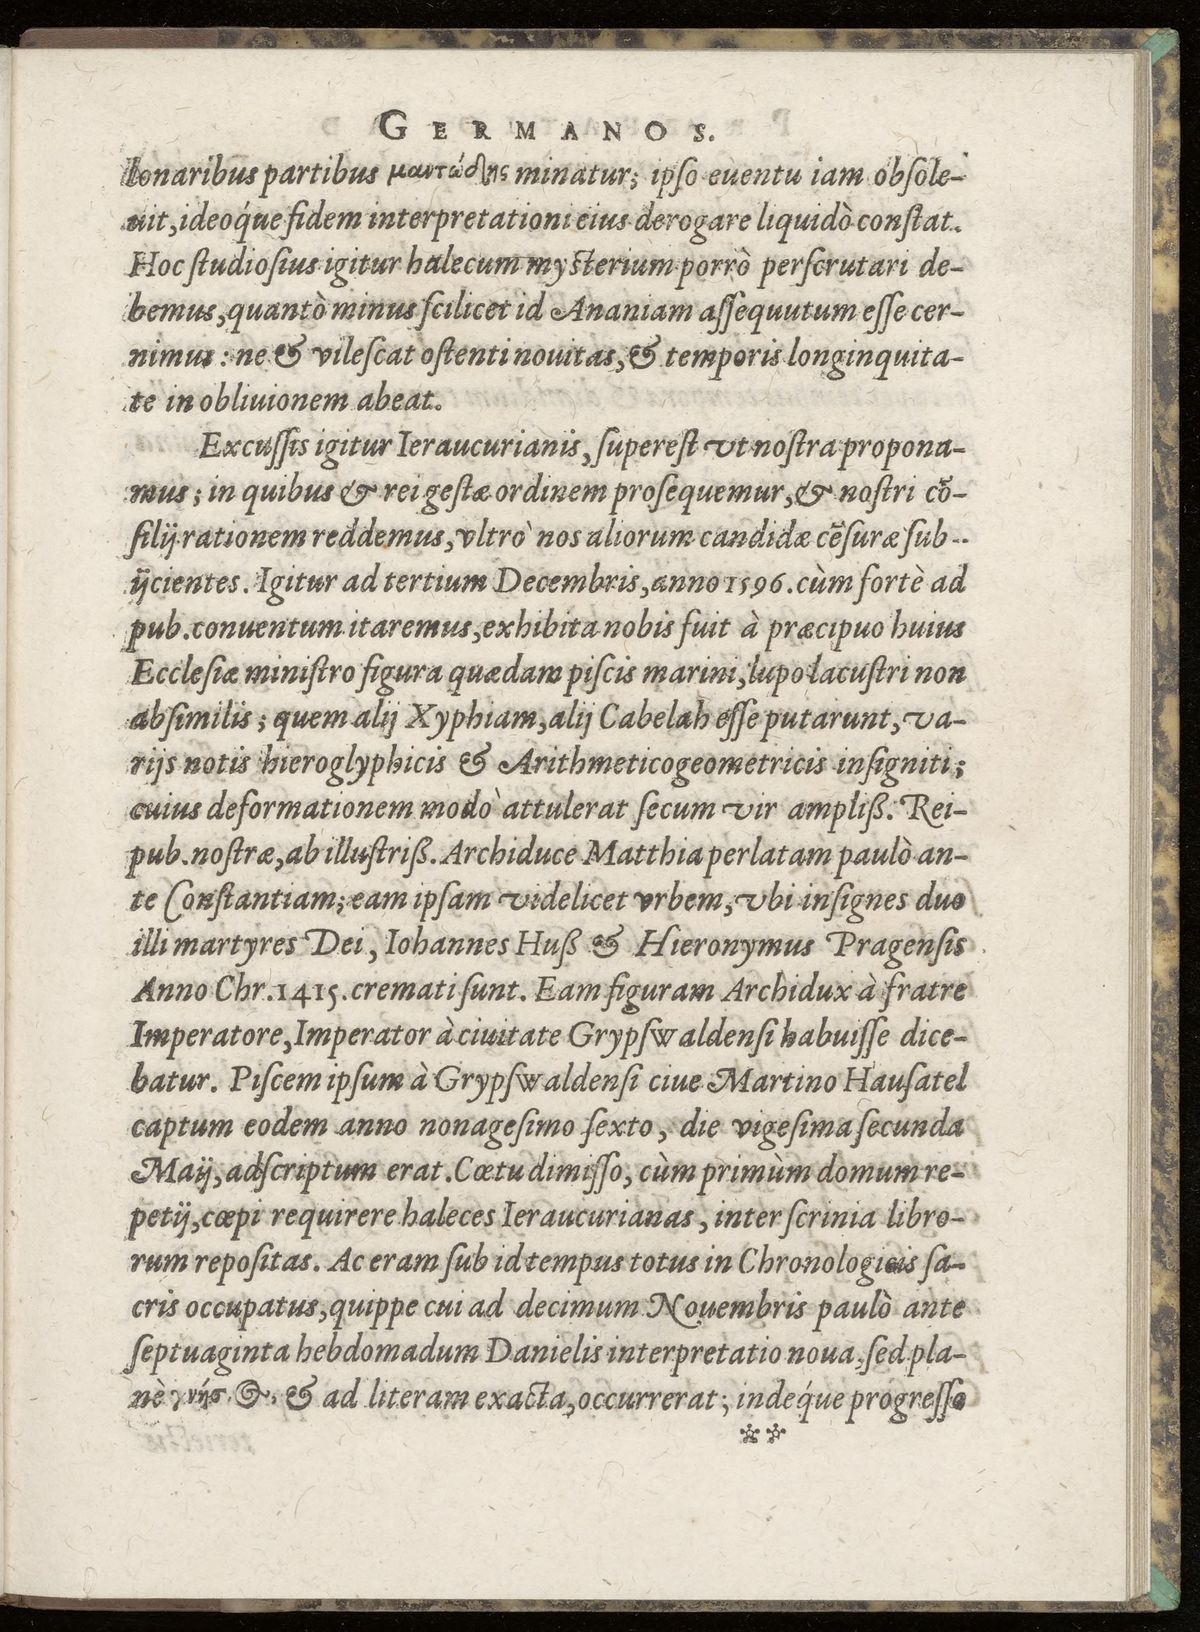 GERMANOS.
lonaribus partibus μαντώδης minatur; ipſo euentu iam obſole-
uit, ideoq́ue fidem interpretationi eius derogare liquidò conſtat.
Hoc ſtudioſius igitur halecum myſterium porrò perſcrutari de-
bemus, quantò minus ſcilicet id Ananiam aſſequutum eſſe cer-
nimus: ne & vileſcat oſtenti nouitas, & temporis longinquita-
te in obliuionem abeat.
Excuſſis igitur Ieraucurianis, ſupereſt vt noſtra propona-
mus; in quibus & rei geſtæ ordinem proſequemur, & noſtri cõ-
ſilij rationem reddemus, vltrò nos aliorum candidæ cẽſuræ ſub-
ijcientes. Igitur ad tertium Decembris, anno 1596. cùm fortè ad
pub. conuentum itaremus, exhibita nobis fuit à præcipuo huius
Eccleſiæ miniſtro figura quædam piſcis marini, lupo lacuſtri non
abſimilis; quem alij Xyphiam, alij Cabelah eſſe putarunt, va-
rijs notis hieroglyphicis & Arithmeticogeometricis inſigniti;
cuius deformationem modò attulerat ſecum vir ampliß. Rei-
pub. noſtræ, ab illuſtriß. Archiduce Matthia perlatam paulò an-
te Conſtantiam; eam ipſam videlicet vrbem, vbi inſignes duo
illi martyres Dei, Iohannes Huß & Hieronymus Pragenſis
Anno Chr. 1415. cremati ſunt. Eam figuram Archidux à fratre
Imperatore, Imperator à ciuitate Grypſwaldenſi habuiſſe dice-
batur. Piſcem ipſum à Grypſwaldenſi ciue Martino Hauſatel
captum eodem anno nonageſimo ſexto, die vigeſima ſecunda
Maij, adſcriptum erat. Cœtu dimiſſo, cùm primùm domum re-
petij, cœpi requirere haleces Ieraucurianas, inter ſcrinia libro-
rum repoſitas. Ac eram ſub id tempus totus in Chronologicis ſa-
cris occupatus, quippe cui ad decimum Nouembris paulò ante
ſeptuaginta hebdomadum Danielis interpretatio noua, ſed pla-
nè & ad literam exacta, occurrerat; indeq́ue progreſſo
**